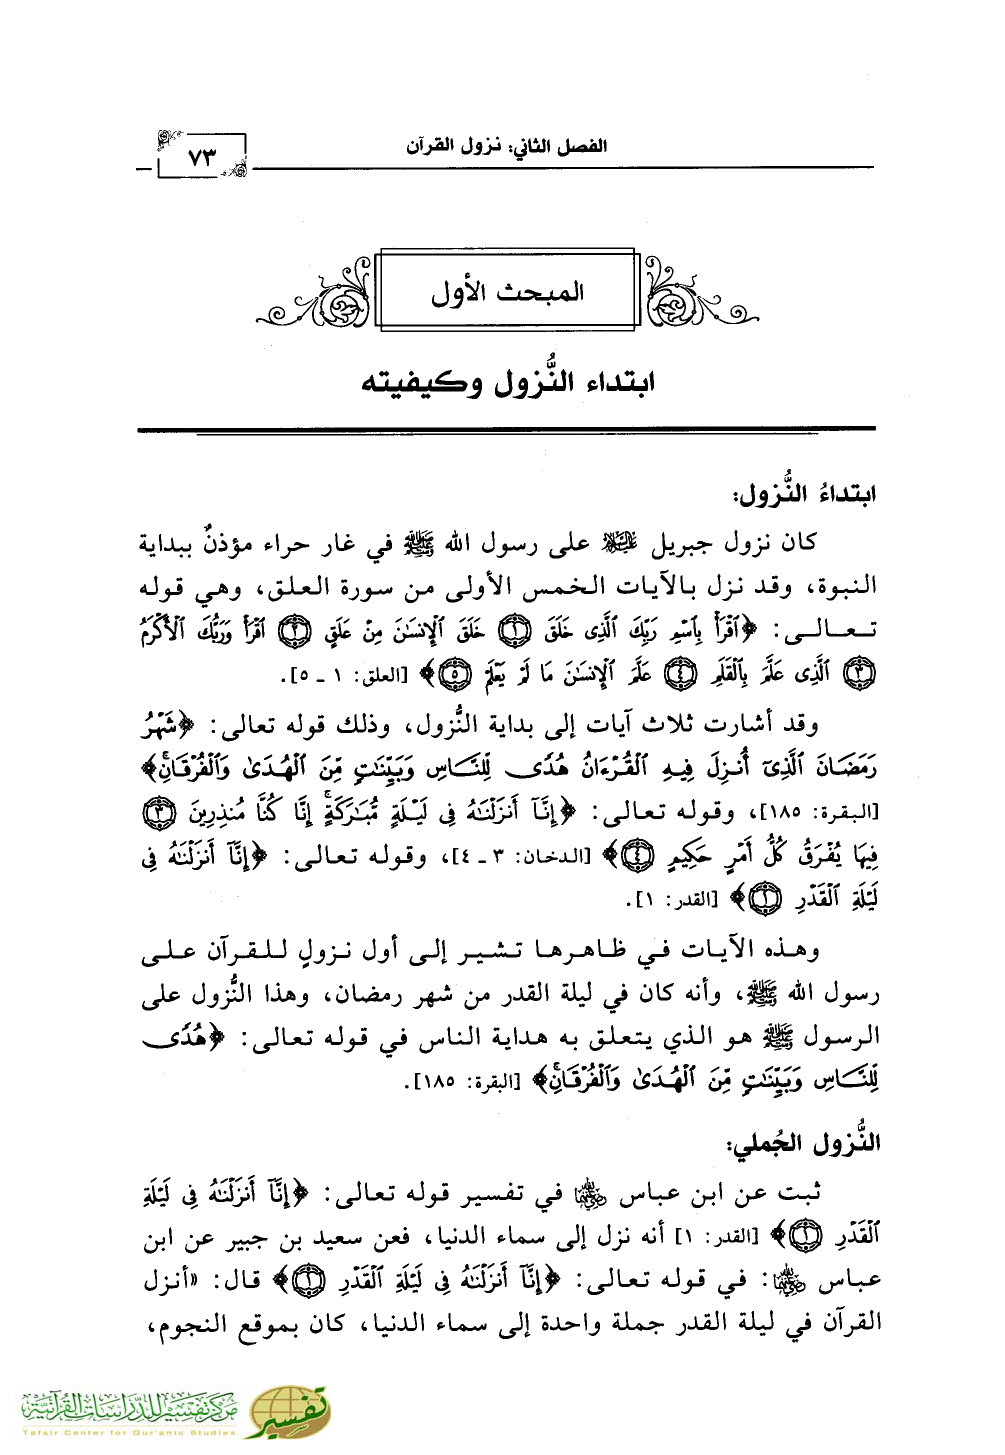 الفصل الثاني: نزول القرآن
٧٣
المبحث الأول
ابتداء النُّزول وكيفيته
ابتداءُ النُّزول:
كان نزول جبريل عليه السلام على رسول الله ﷺ في غار حراء مؤذنٌ ببداية
النبوة، وقد نزل بالآيات الخمس الأولى من سورة العلق، وهي قوله
تعالى: ﴿ٱقْرَأْ بِٱسْمِ رَبِّكَ ٱلَّذِى خَلَقَ ۝١ خَلَقَ ٱلْإِنسَٰنَ مِنْ عَلَقٍ ۝٢ ٱقْرَأْ وَرَبُّكَ ٱلْأَكْرَمُ
۝٣ ٱلَّذِى عَلَّمَ بِٱلْقَلَمِ ۝٤ عَلَّمَ ٱلْإِنسَٰنَ مَا لَمْ يَعْلَمْ ۝٥﴾ [العلق: ١ ـ ٥].
وقد أشارت ثلاث آيات إلى بداية النُّزول، وذلك قوله تعالى: ﴿شَهْرُ
رَمَضَانَ ٱلَّذِىٓ أُنزِلَ فِيهِ ٱلْقُرْءَانُ هُدًى لِّلنَّاسِ وَبَيِّنَٰتٍ مِّنَ ٱلْهُدَىٰ وَٱلْفُرْقَانِۚ﴾
[البقرة: ١٨٥]، وقوله تعالى: ﴿إِنَّآ أَنزَلْنَٰهُ فِى لَيْلَةٍ مُّبَٰرَكَةٍۚ إِنَّا كُنَّا مُنذِرِينَ ۝٣
فِيهَا يُفْرَقُ كُلُّ أَمْرٍ حَكِيمٍ ۝٤﴾ [الدخان: ٣ ـ ٤]، وقوله تعالى: ﴿إِنَّآ أَنزَلْنَٰهُ فِى
لَيْلَةِ ٱلْقَدْرِ ۝١﴾ [القدر: ١].
وهذه الآيات في ظاهرها تشير إلى أول نزولٍ للقرآن على
رسول الله ﷺ، وأنه كان في ليلة القدر من شهر رمضان، وهذا النُّزول على
الرسول ﷺ هو الذي يتعلق به هداية الناس في قوله تعالى: ﴿هُدًى
لِّلنَّاسِ وَبَيِّنَٰتٍ مِّنَ ٱلْهُدَىٰ وَٱلْفُرْقَانِۚ﴾ [البقرة: ١٨٥].
النُّزول الجُملي:
ثبت عن ابن عباس رضي الله عنهما في تفسير قوله تعالى: ﴿إِنَّآ أَنزَلْنَٰهُ فِى لَيْلَةِ
ٱلْقَدْرِ ۝١﴾ [القدر: ١] أنه نزل إلى سماء الدنيا، فعن سعيد بن جبير عن ابن
عباس رضي الله عنهما: في قوله تعالى: ﴿إِنَّآ أَنزَلْنَٰهُ فِى لَيْلَةِ ٱلْقَدْرِ ۝١﴾ قال: «أنزل
القرآن في ليلة القدر جملة واحدة إلى سماء الدنيا، كان بموقع النجوم،
مركز تفسير للدراسات القرآنية
Tafsir Center for Qur'anic Studies
تفسير